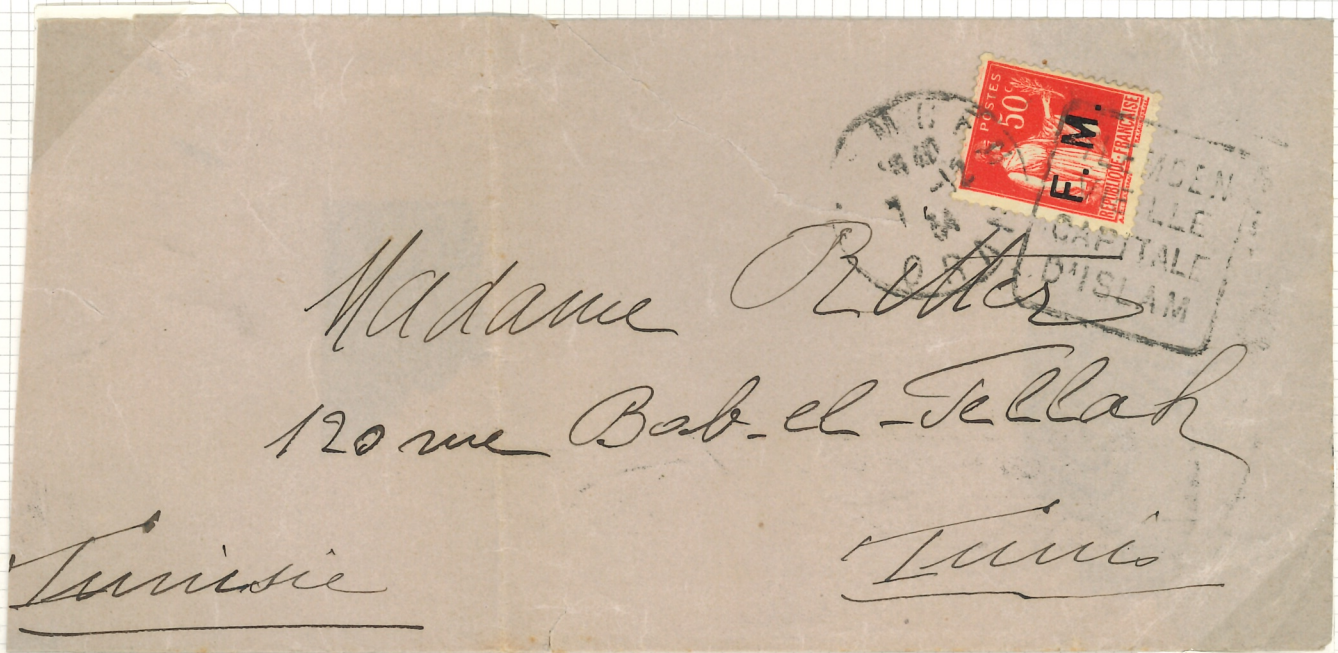 POSTES
50c
RÉPUBLIQUE FRANÇAISE
F. M.
CAPITALE
D'ISLAM
Madame Ritter
120 rue Bab-el-Fellah
Tunis
Tunisie